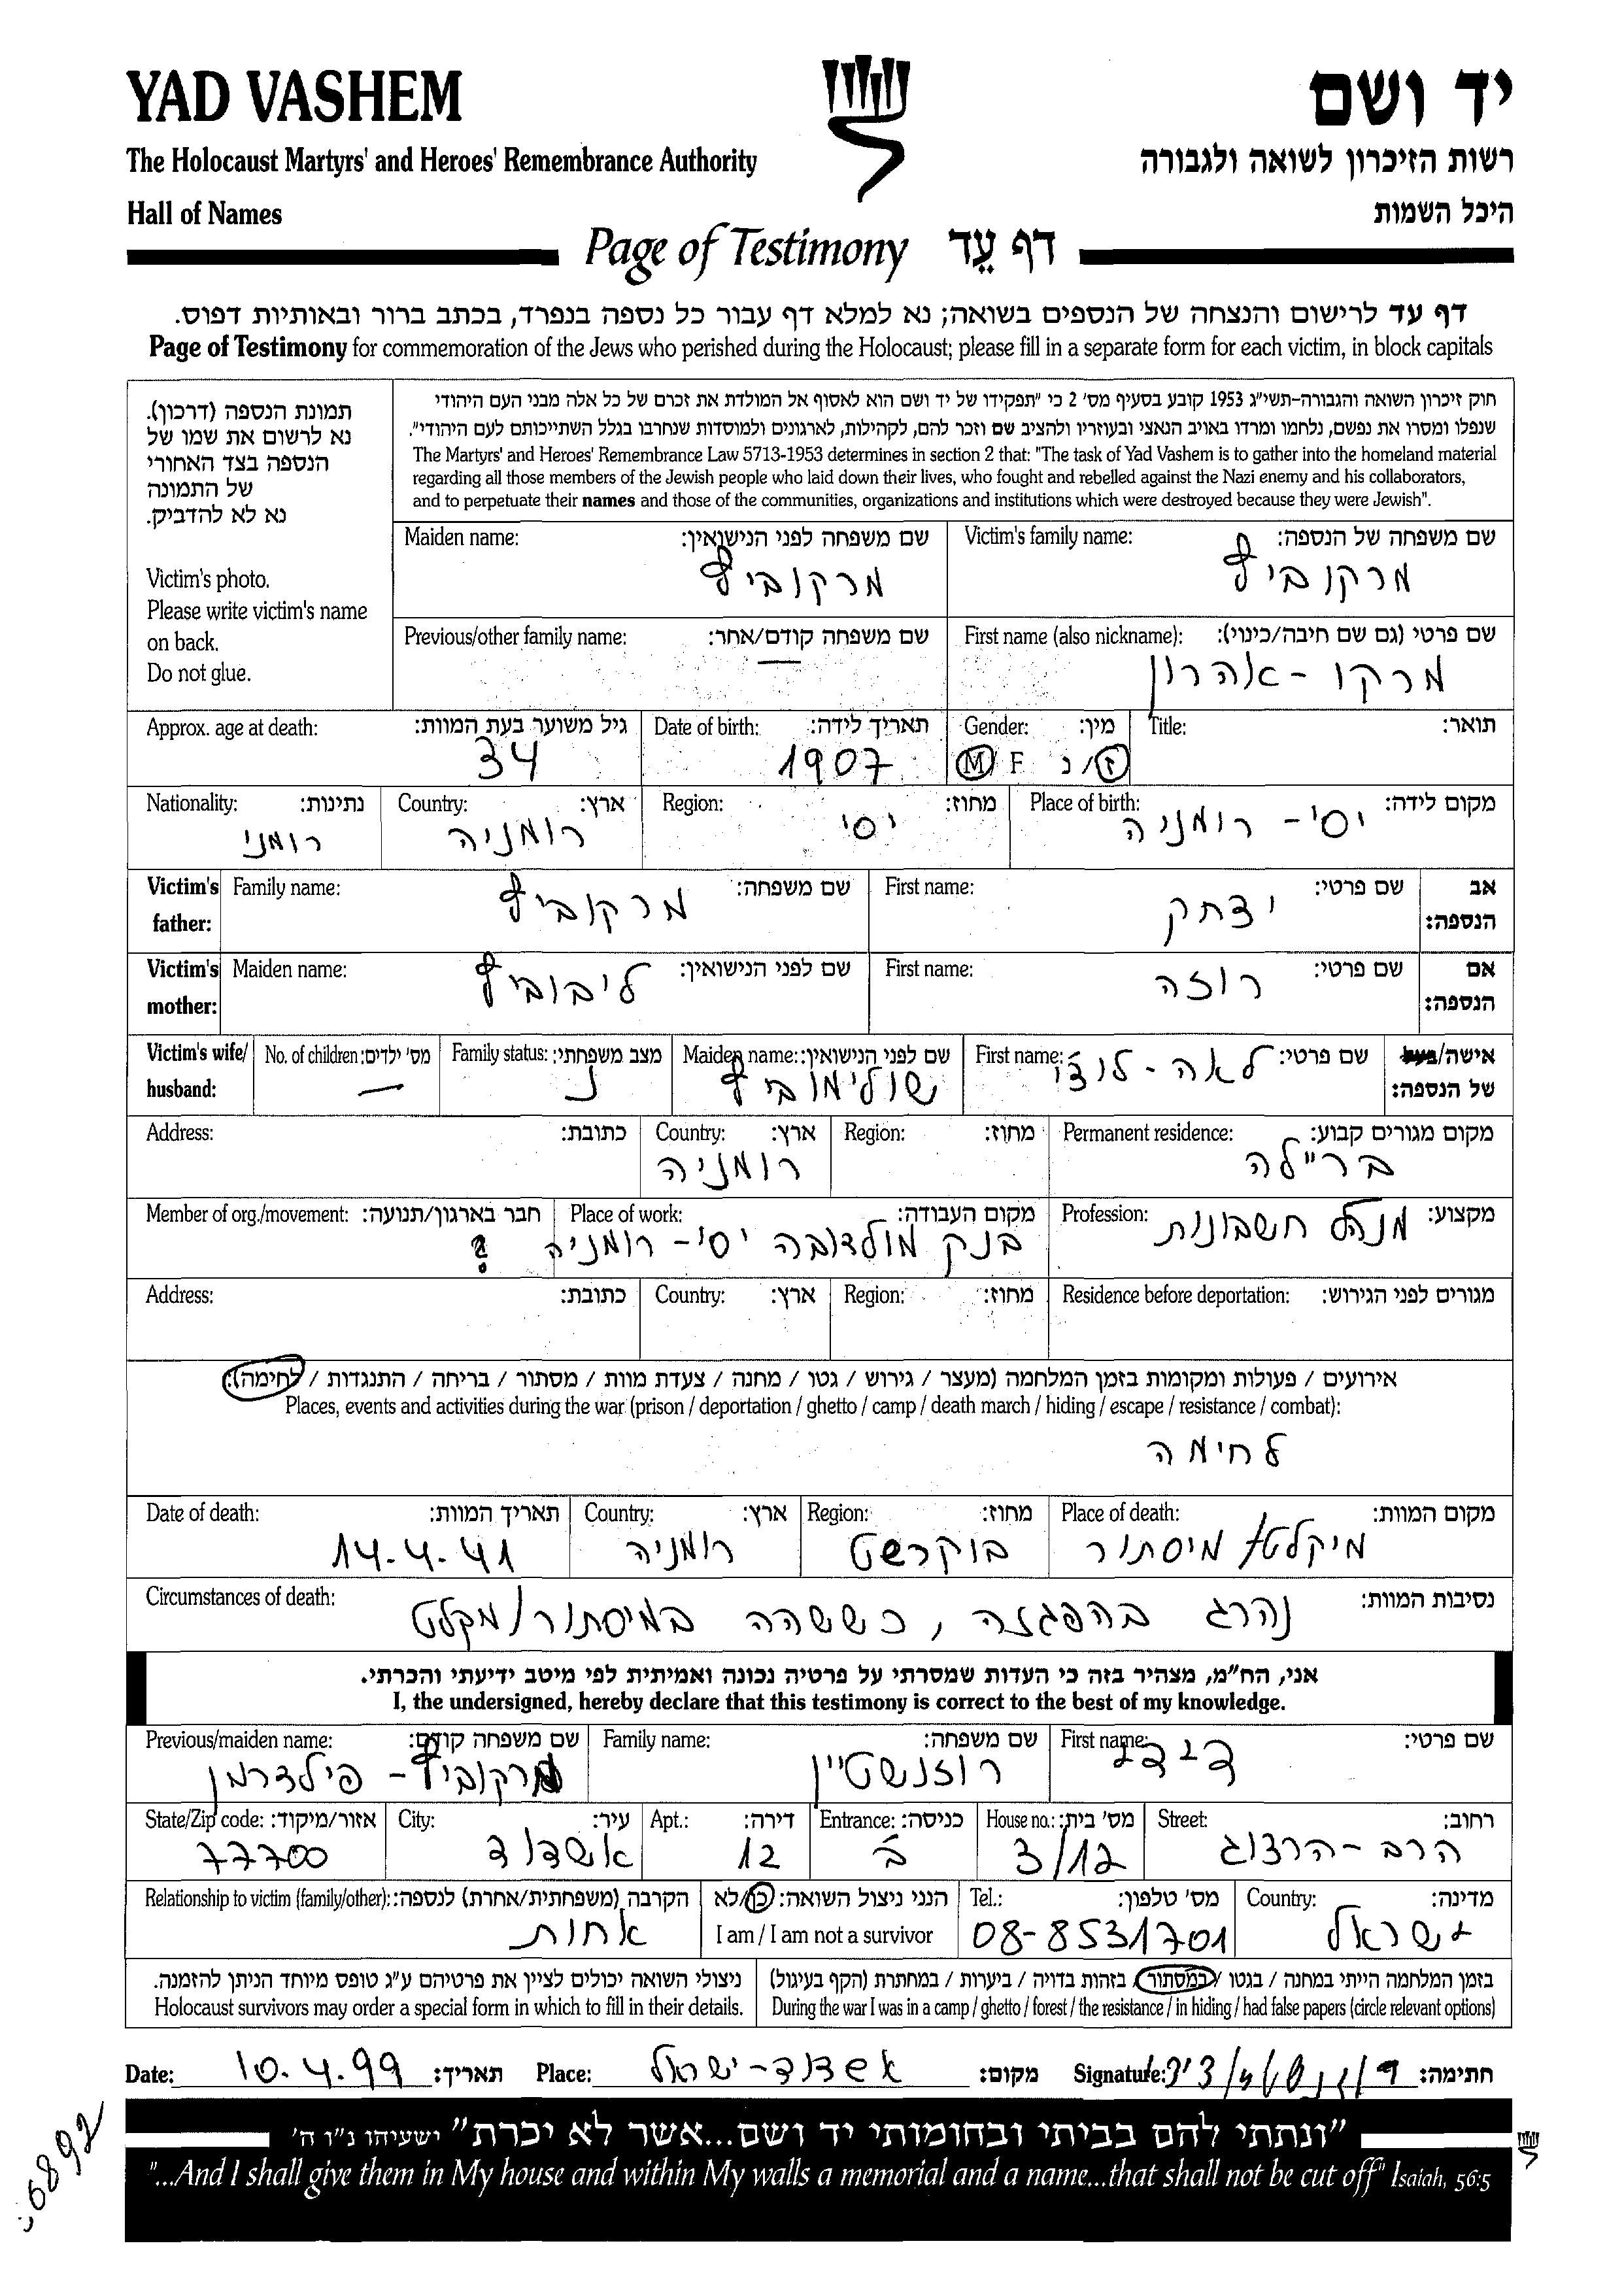 YAD VASHEM
יד ושם
The Holocaust Martyrs' and Heroes' Remembrance Authority
רשות הזיכרון לשואה ולגבורה
Hall of Names
היכל השמות
Page of Testimony דף עֵד
דף עד לרישום והנצחה של הנספים בשואה; נא למלא דף עבור כל נספה בנפרד, בכתב ברור ובאותיות דפוס.
Page of Testimony for commemoration of the Jews who perished during the Holocaust; please fill in a separate form for each victim, in block capitals
תמונת הנספה (דרכון).
נא לרשום את שמו של
הנספה בצד האחורי
של התמונה
נא לא להדביק.
Victim's photo.
Please write victim's name
on back.
Do not glue.
חוק זיכרון השואה והגבורה-תשי"ג 1953 קובע בסעיף מס' 2 כי "תפקידו של יד ושם הוא לאסוף אל המולדת את זכרם של כל אלה מבני העם היהודי
שנפלו ומסרו את נפשם, נלחמו ומרדו באויב הנאצי ובעוזריו ולהציב שם וזכר להם, לקהילות, לארגונים ולמוסדות שנחרבו בגלל השתייכותם לעם היהודי".
The Martyrs' and Heroes' Remembrance Law 5713-1953 determines in section 2 that: "The task of Yad Vashem is to gather into the homeland material
regarding all those members of the Jewish people who laid down their lives, who fought and rebelled against the Nazi enemy and his collaborators,
and to perpetuate their names and those of the communities, organizations and institutions which were destroyed because they were Jewish".
Victim's family name: שם משפחה של הנספה:
מרקוביץ
Maiden name: שם משפחה לפני הנישואין:
מרקוביץ
First name (also nickname): שם פרטי (גם שם חיבה/כינוי):
מרקו - אהרון
Previous/other family name: שם משפחה קודם/אחר:
—
Title: תואר:
Gender: מין:
M F ז/נ
Date of birth: תאריך לידה:
1907
Approx. age at death: גיל משוער בעת המוות:
34
Place of birth: מקום לידה:
יסי - רומניה
Region: מחוז:
יסי
Country: ארץ:
רומניה
Nationality: נתינות:
רומני
Victim's father: אב הנספה:
First name: שם פרטי:
יצחק
Family name: שם משפחה:
מרקוביץ
Victim's mother: אם הנספה:
First name: שם פרטי:
רוזה
Maiden name: שם לפני הנישואין:
ליבוביץ
Victim's wife/husband: אישה/בעל של הנספה:
First name: שם פרטי:
לאה - לוצי
Maiden name: שם לפני הנישואין:
שולימוביץ
Family status: מצב משפחתי:
נ
No. of children: מס' ילדים:
—
Permanent residence: מקום מגורים קבוע:
ברילה
Region: מחוז:
Country: ארץ:
רומניה
Address: כתובת:
Profession: מקצוע:
מנהל חשבונות
Place of work: מקום העבודה:
בנק מולדובה יסי - רומניה
Member of org./movement: חבר בארגון/תנועה:
?
Residence before deportation: מגורים לפני הגירוש:
Region: מחוז:
Country: ארץ:
Address: כתובת:
אירועים / פעולות ומקומות בזמן המלחמה (מעצר / גירוש / גטו / מחנה / צעדת מוות / מסתור / בריחה / התנגדות / לחימה):
Places, events and activities during the war (prison / deportation / ghetto / camp / death march / hiding / escape / resistance / combat):
לחימה
Place of death: מקום המוות:
מיקלט/ מיסתור
Region: מחוז:
בוקרשט
Country: ארץ:
רומניה
Date of death: תאריך המוות:
14.4.41
Circumstances of death: נסיבות המוות:
נהרג בהפגזה, כששהה במיסתור/מקלט
אני, הח"מ, מצהיר בזה כי העדות שמסרתי על פרטיה נכונה ואמיתית לפי מיטב ידיעתי והכרתי.
I, the undersigned, hereby declare that this testimony is correct to the best of my knowledge.
First name: שם פרטי:
Family name: שם משפחה:
רוזנשטיין
Previous/maiden name: שם משפחה קודם:
מרקוביץ - פילדרמן
Street: רחוב:
הרב - הרצוג
House no.: מס' בית:
3/12
Entrance: כניסה:
ב
Apt.: דירה:
12
City: עיר:
אשדוד
State/Zip code: אזור/מיקוד:
77700
Country: מדינה:
ישראל
Tel.: מס' טלפון:
08-8531701
הנני ניצול השואה: כן/לא
I am / I am not a survivor
Relationship to victim (family/other): הקרבה (משפחתית/אחרת) לנספה:
אחות
בזמן המלחמה הייתי במחנה / בגטו / במסתור / בזהות בדויה / ביערות / במחתרת (הקף בעיגול)
During the war I was in a camp / ghetto / forest / the resistance / in hiding / had false papers (circle relevant options)
ניצולי השואה יכולים לציין את פרטיהם ע"ג טופס מיוחד הניתן להזמנה.
Holocaust survivors may order a special form in which to fill in their details.
Date: 10.4.99 תאריך: Place: אשדוד - ישראל מקום: Signature: חתימה:
"ונתתי להם בביתי ובחומותי יד ושם...אשר לא יכרת" ישעיהו נ"ו ה'
"...And I shall give them in My house and within My walls a memorial and a name...that shall not be cut off" Isaiah, 56:5